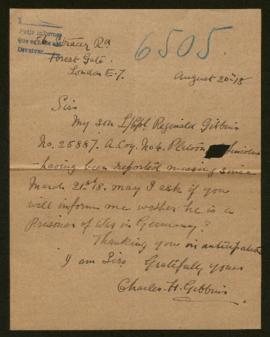 6505
Rd
Forest Gate
London E.7.
August 20th 18
Sir
My son L/Cpl Reginald Gibbins
No. 25887. A. Coy. No 6. Platoon
having been reported missing since
March 21st 18. may I ask if you
will inform me wether he is a
Prisoner of War in Germany?
Thanking you in anticipation
I am Sirs Gratefully yours
Charles H. Gibbins